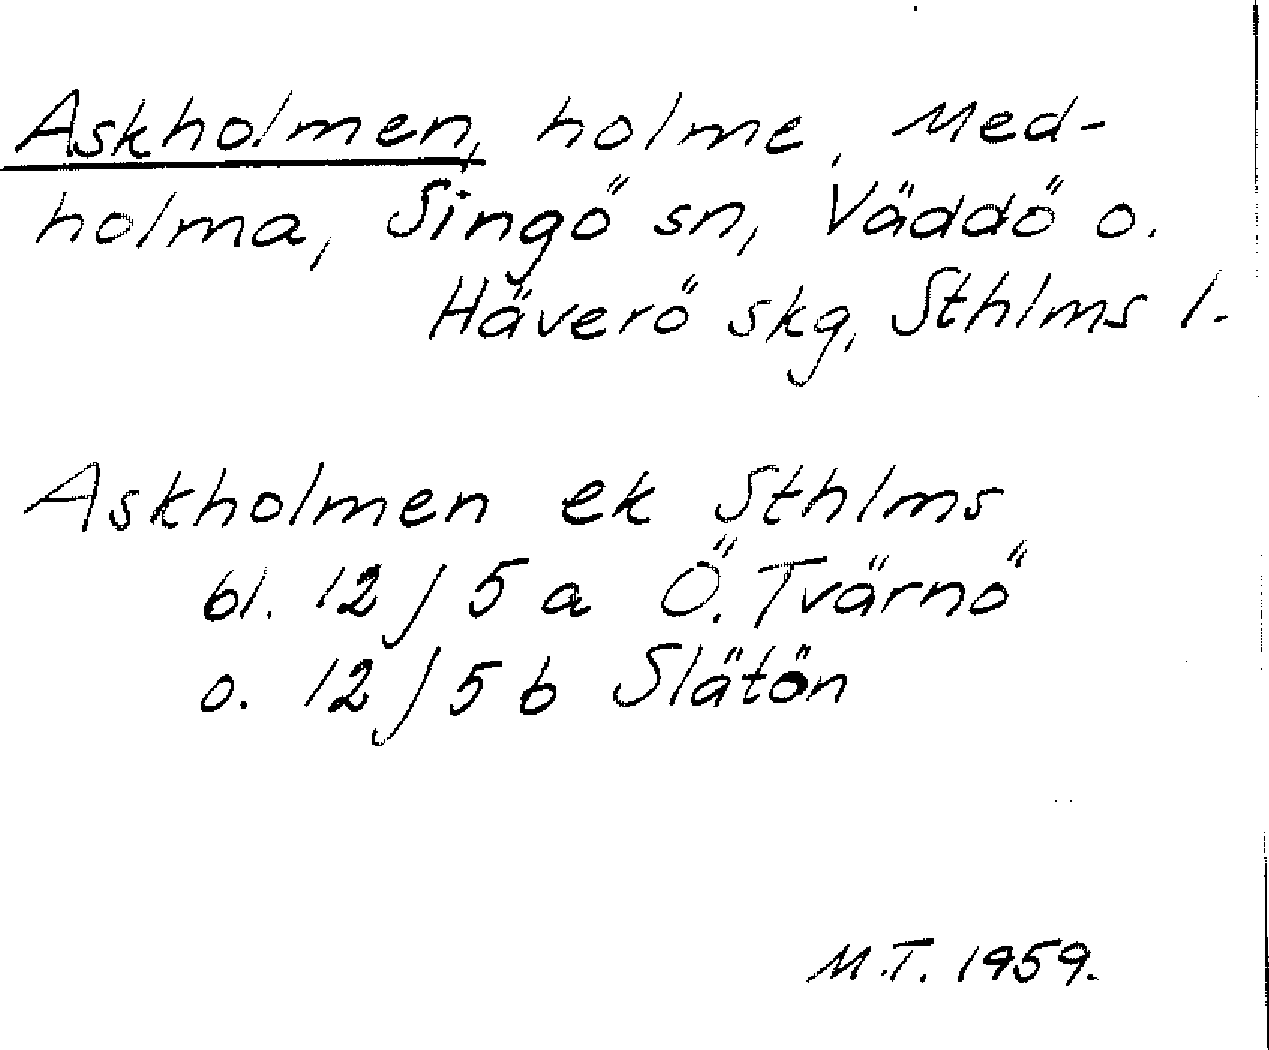 Askholmen, holme, Med-
holma, Singö sn, Väddö o.
Häverö skg, Sthlms l.
Askholmen ek Sthlms
bl. 12 J 5 a Ö. Tvärnö
o. 12 J 5 b Slätön
M.T. 1959.